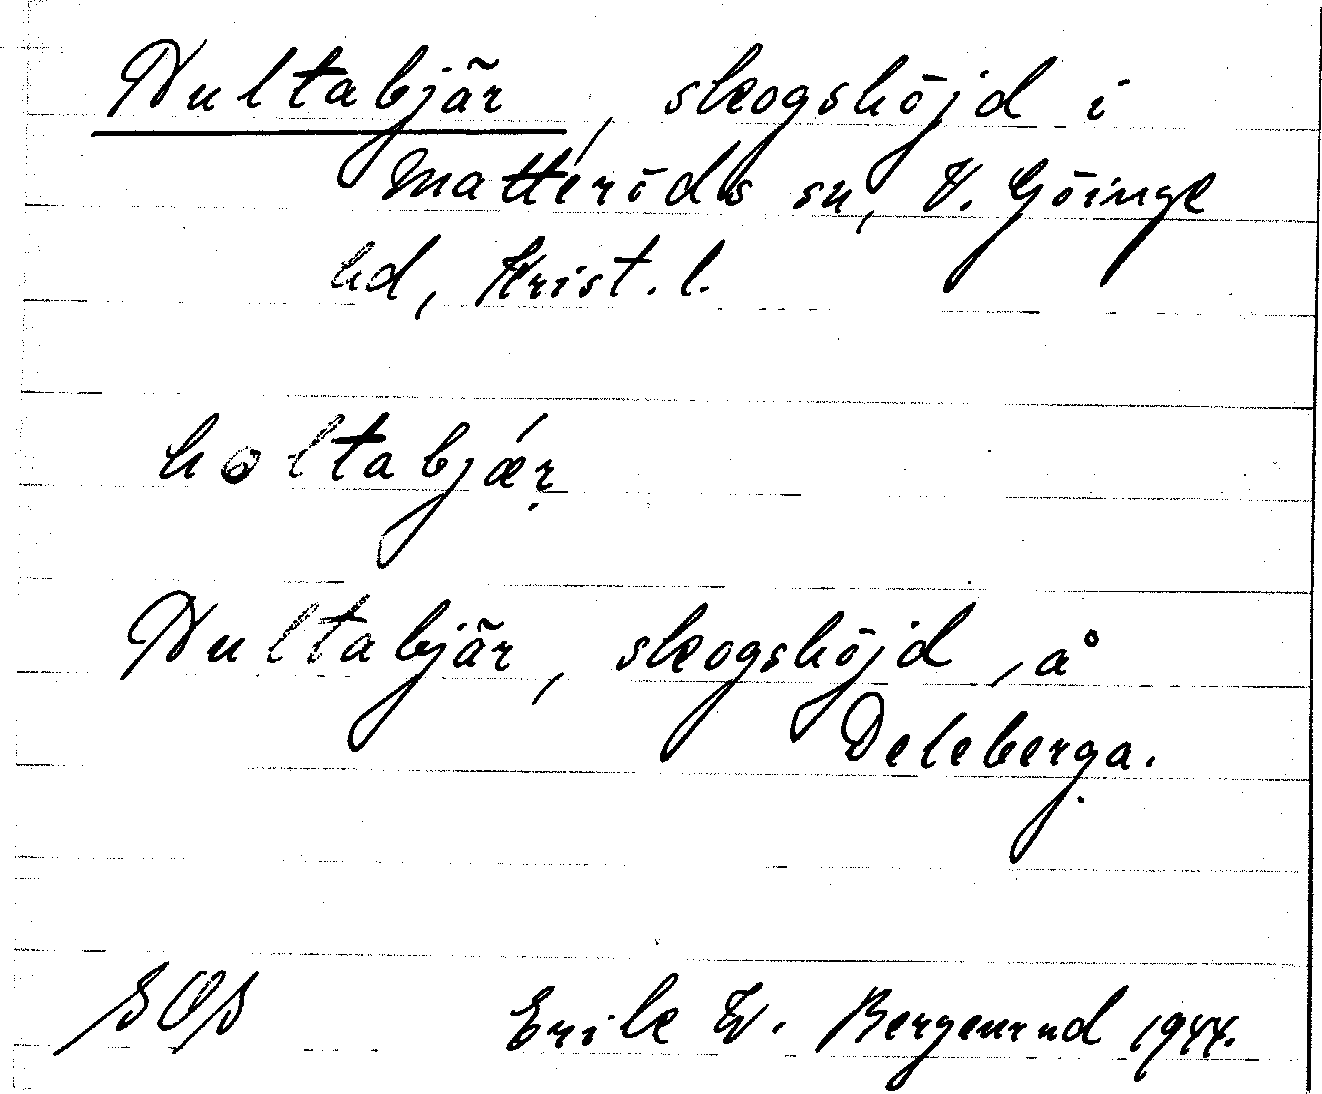 Hultabjär, skogshöjd i
Matteröds sn, V. Göinge
hd, Krist. l.
holtabjǽṛ
Hultabjär, skogshöjd, å
Deleberga.
SOS Erik W. Bergenrud 1944.